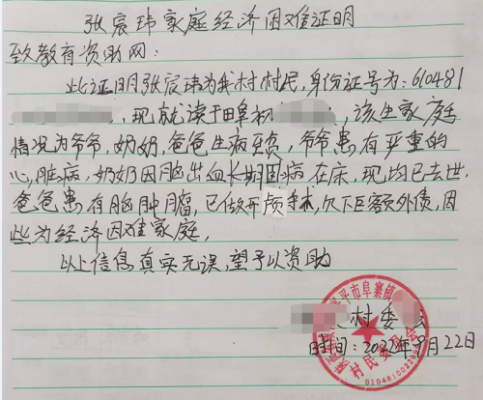 张宸玮家庭经济困难证明
致教育资助网：
此证明张宸玮为我村村民，身份证号为：610481
，现就读于阜初，该生家庭
情况为爷爷，奶奶，爸爸生病负债，爷爷患有严重的
心脏病，奶奶因脑出血长期因病在床，现均已去世，
爸爸患有脑肿腷，已做开颅手术，欠下巨额外债，因
此为经济困难家庭。
以上信息真实无误，望予以资助
村委
时间：2022年9月22日
平市阜寨镇
村民委员会